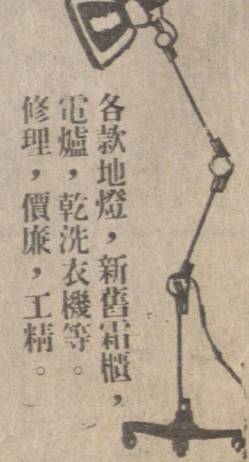 各款地燈，新舊霜櫃，
電爐，乾洗衣機等。
修理，價廉，工精。